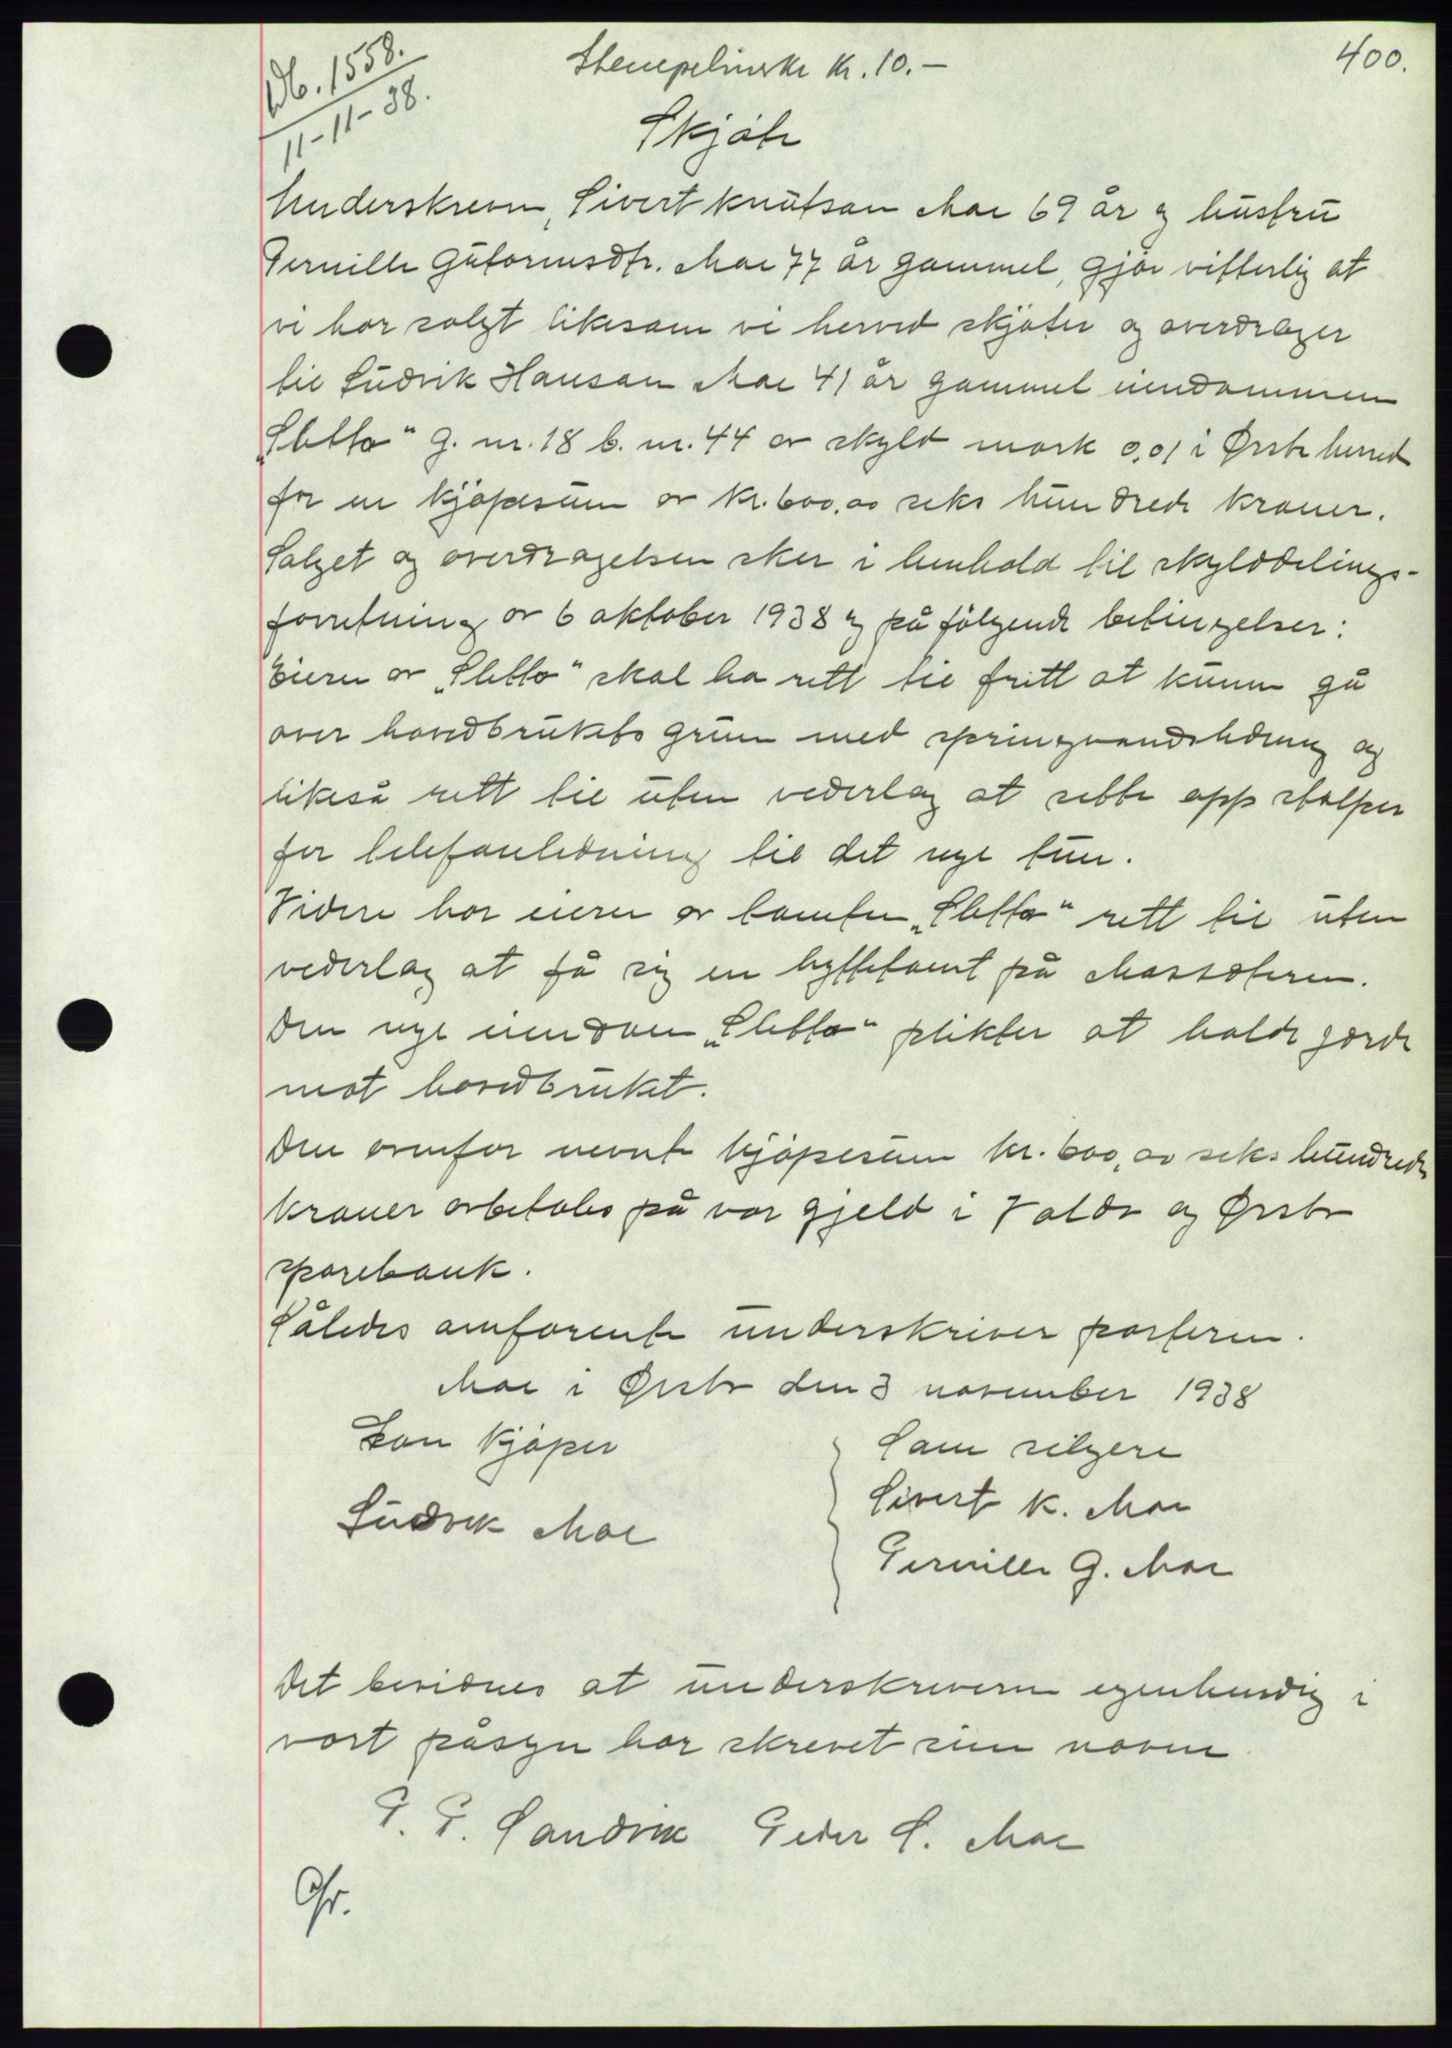 Db. 1558.
11-11-38.
Stempelmerke kr. 10.-
400.
Skjøte
Underskrevne, Sivert Knutson Moe 69 år og hustru
Pernille Gutormsdtr. Moe 77 år gammel, gjør vitterlig at
vi har solgt likesom vi herved skjøter og overdrager
til Ludvik Hanson Moe 41 år gammel eiendommen
„Sletta" g. nr. 18 b. nr. 44 av skyld mark 0,01 i Ørsta herred
for en kjøpesum av kr. 600,00 seks hundrede kroner.
Salget og overdragelsen sker i henhold til skylddelings-
forretning av 6 oktober 1938 og på følgende betingelser:
Eieren av „Sletta" skal ha rett til fritt at kunne gå
over hovedbrukets grunn med springvandsledning og
likeså rett til uten vederlag at sette opp stolper
for telefonledning til det nye tun.
Videre har eieren av tomten „Sletta" rett til uten
vederlag at få sig en hyttetomt på Moesæteren.
Den nye eiendom „Sletta" plikter at holde gjerde
mot hovedbruket.
Den ovenfor nevnte kjøpesum kr. 600,00 seks hundrede
kroner avbetales på vor gjeld i Volda og Ørsta
sparebank.
Således omforente underskriver partene.
Moe i Ørsta den 3 november 1938
Som kjøper
Ludvik Moe
Som selgere
Sivert K. Moe
Pernille G. Moe
Det bevidnes at underskriverne egenhendig i
vort påsyn har skrevet sine navne.
P. P. Sandvik Peder S. Moe